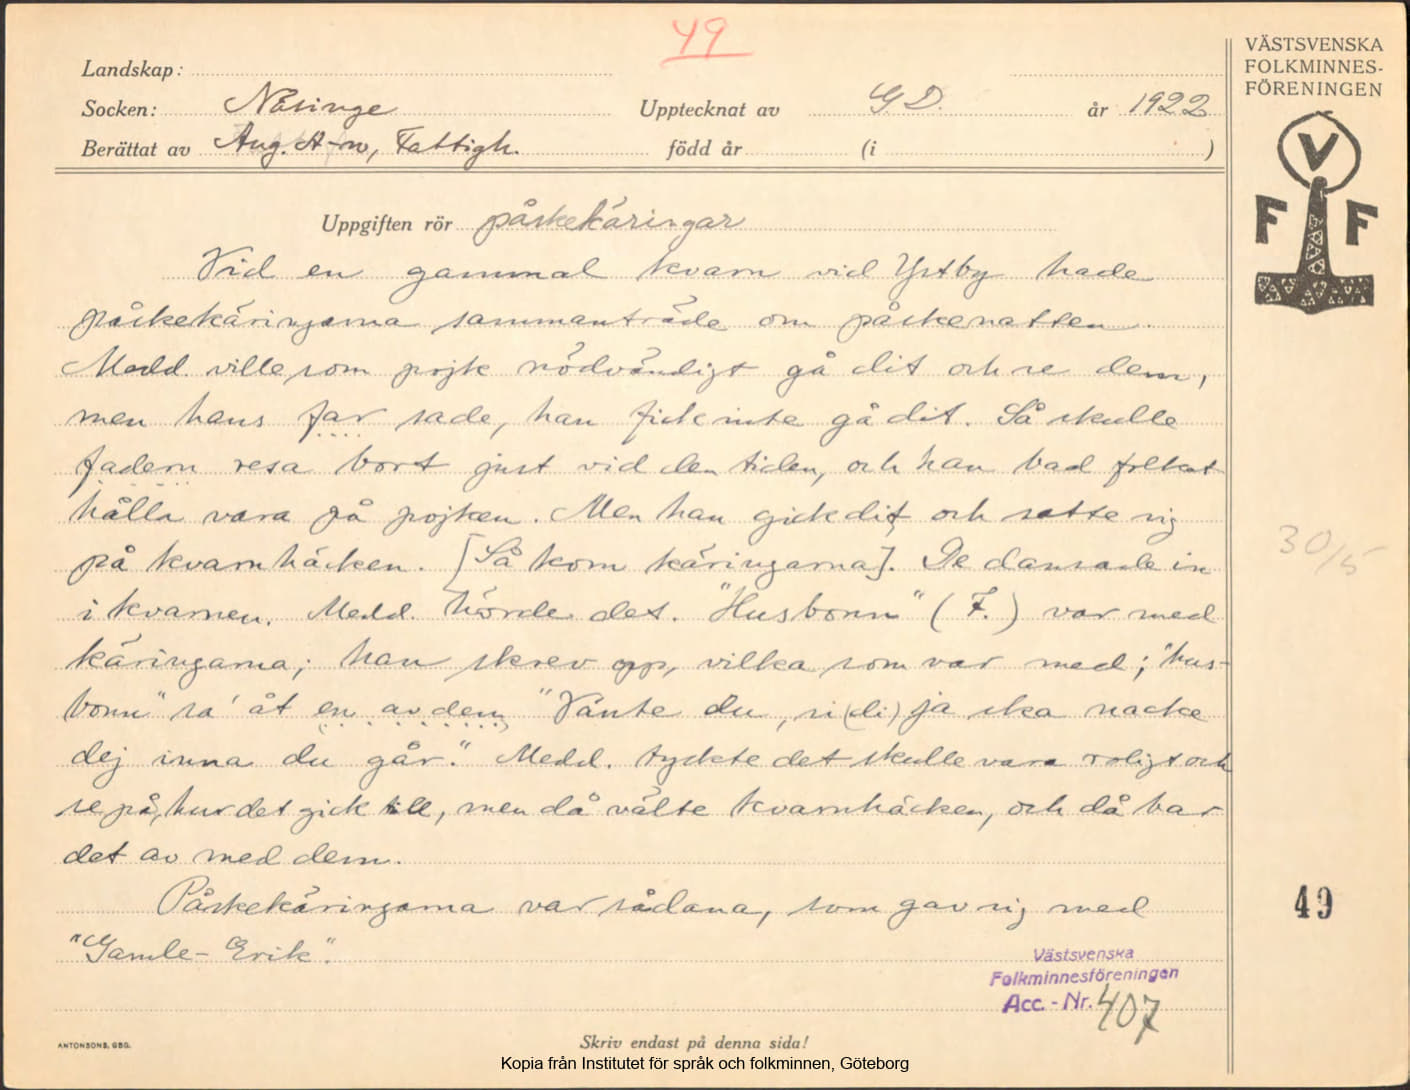 49
VÄSTSVENSKA
FOLKMINNES-
FÖRENINGEN
Landskap:
Socken: Näsinge Upptecknat av G. D. år 1922
Berättat av Aug. A-n, Fattigh. född år (i )
V
F F
Uppgiften rör påskekäringar
Vid en gammal kvarn vid Ystby hade
påskekäringarna sammanträde om påskenatten.
Medd. ville som pojk nödvändigt gå dit och se dem,
men hans far sade, han fick inte gå dit. Så skulle
fadern resa bort just vid den tiden, och han bad folket
hålla vara på pojken. Men han gick dit, och satte sig
på kvarnhäcken. [Så kom käringarna]. De dansade in
i kvarnen. Medd. hörde det. "Husbonn" (F.) var med
käringarna; han skrev opp, vilka som var med; "hus-
bonn" sa' åt en av dem "Vänte du, si (di) ja ska nacke
dej inna du går." Medd. tyckte det skulle vara roligt och
se på, hur det gick till, men då välte kvarnhäcken, och då bar
det av med dem.
Påskekäringarna var sådana, som gav sig med
"Gamle-Erik".
30/5
49
Västsvenska
Folkminnesföreningen
Acc. - Nr. 407
ANTONSONS, GBG.
Skriv endast på denna sida!
Kopia från Institutet för språk och folkminnen, Göteborg